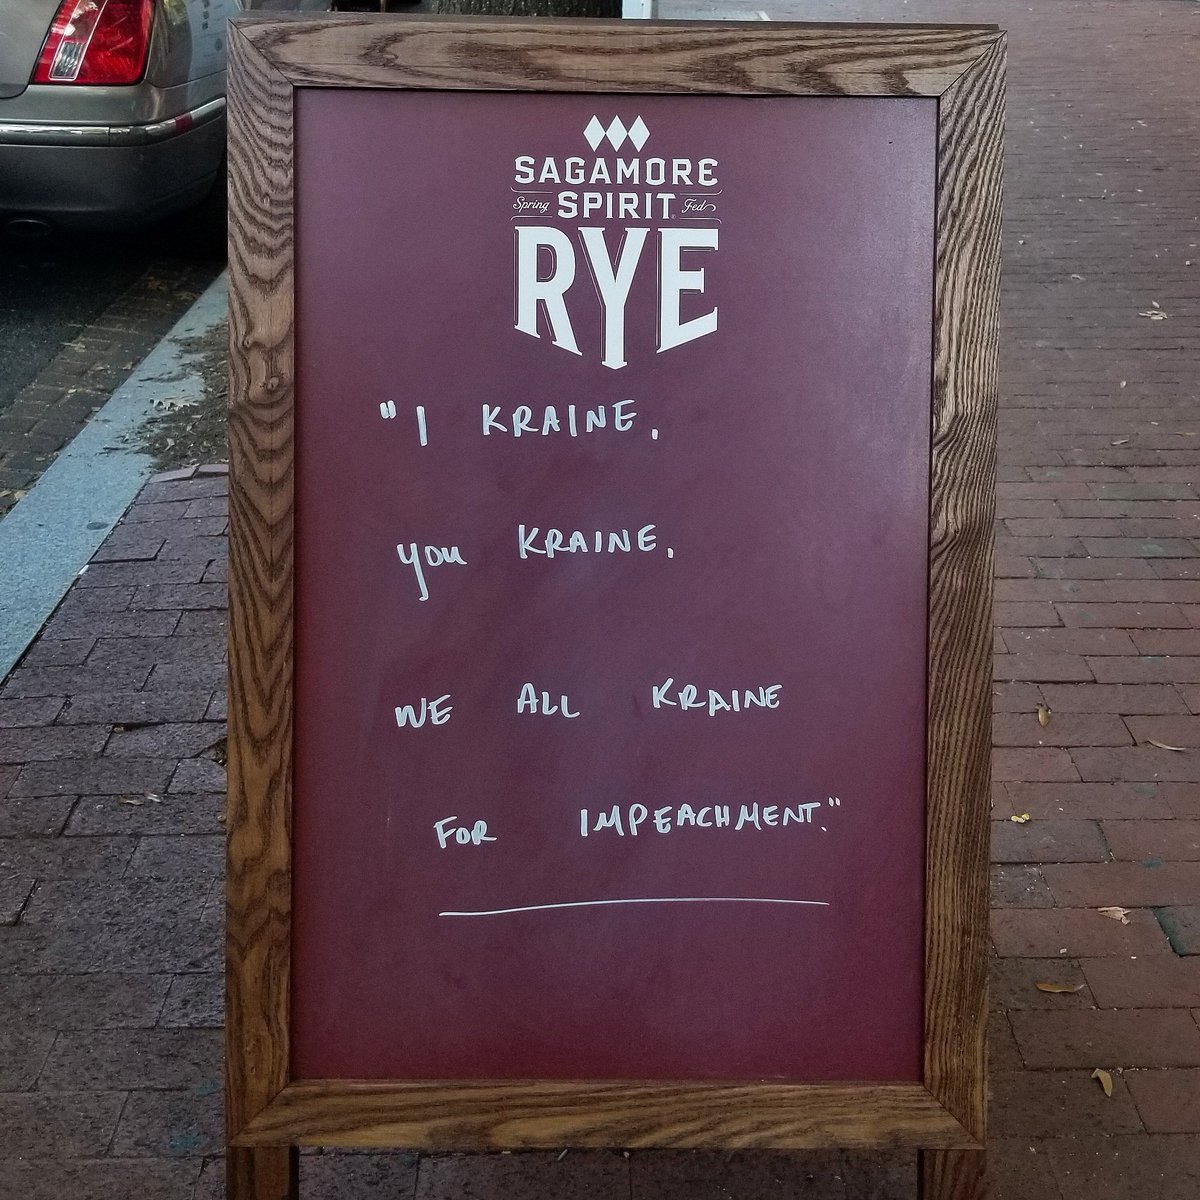 SAGAMORE
Spring SPIRIT Fed
RYE
"I KRAINE,
you KRAINE,
WE ALL KRAINE
FOR IMPEACHMENT."